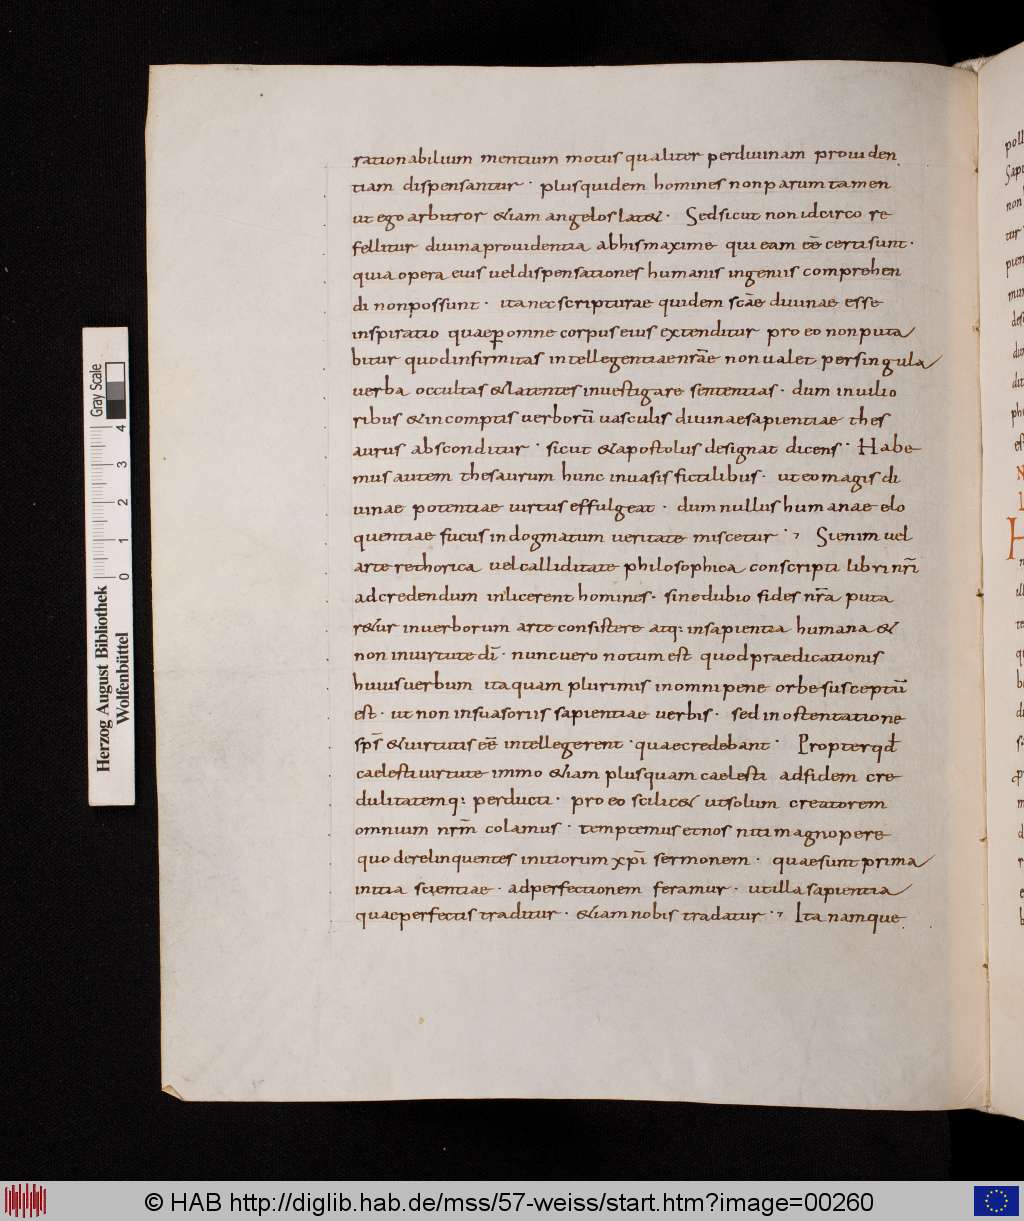 rationabilium mentium motus qualiter perdiuinam prouiden
tiam dispensantur · plusquidem homines nonparumtamen
ut ego arbitror &iam angelos lat&· Sedsicut non idcirco re
fellitur diuinaprouidentia abhismaxime qui eam eē certisunt·
quia opera eius ueldispensationes humanis ingeniis comprehen
di nonpossunt· itanecscripturae quidem scāe diuinae esse
inspiratio quaeꝑomne corpus eius extenditur pro eo nonputa
bitur quodinfirmitas intellegentiaenrāe non ualet persingula
uerba occultas &latentes inuestigare sententias· dum inuilio
ribus &incomptis uerborū uasculis diuinaesapientiae thes
aurus absconditur · sicut &apostolus designat dicens· Habe
mus autem thesaurum hunc inuasis fictilibus· uteomagis di
uinae potentiae uirtus effulgeat · dum nullus humanae elo
quentiae fucus indogmatum ueritate miscetur · Sienim uel
arterethorica uelcalliditate philosophica conscripti libri nrī
adcredendum inlicerent homines· sinedubio fides nrā puta
r&ur inuerborum arte consistere atq: insapientia humana &
non inuirtute dī· nuncuero notum est quodpraedicationis
huiusuerbum itaquam plurimis inomnipene orbesusceptū
est· ut non insuasoriis sapientiae uerbis· sed inostentatione
spī &uirtutis eē intellegerent ·quaecredebant· Propterqđ
caelestiuirtute immo &iam plusquam caelesti adfidem cre
dulitatemq: perducti· pro eo scilic& utsolum creatorem
omnium nrm̄ colamus · temptemus etnos niti magnopere
quo derelinquentes initiorum xpī sermonem · quaesunt prima
initia scientiae · adperfectionem feramur · utillasapientia
quaeperfectis traditur · &iamnobis tradatur · Ita namque
Gray Scale
0 1 2 3 4
Herzog August Bibliothek
Wolfenbüttel
© HAB http://diglib.hab.de/mss/57-weiss/start.htm?image=00260